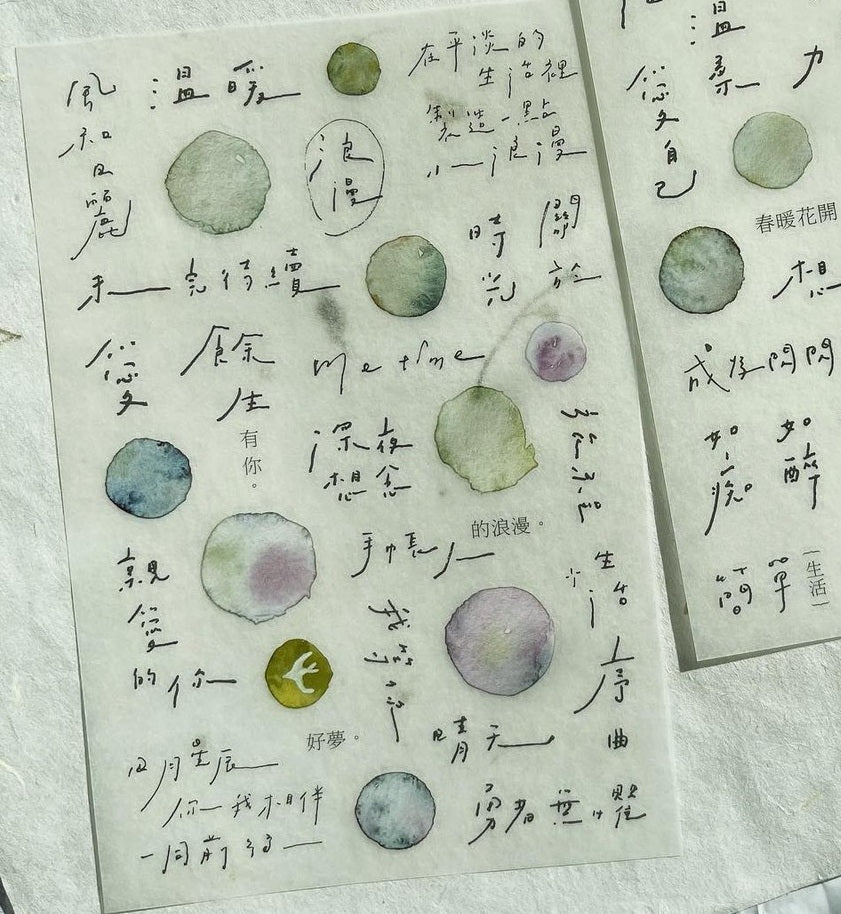 風和日麗
溫暖
浪漫
在平淡的
生活裡
製造一點
小浪漫
未完待續
時光
關於
愛
餘生
有你。
me time
深夜
想念
的浪漫。
手帳人
親愛
的你
生活
序曲
好夢。
晴天
日月星辰
你我相伴
一同前行
勇者無懼
溫柔
力
愛自己
春暖花開
想
成為閃閃
如痴
如醉
簡單
|生活|